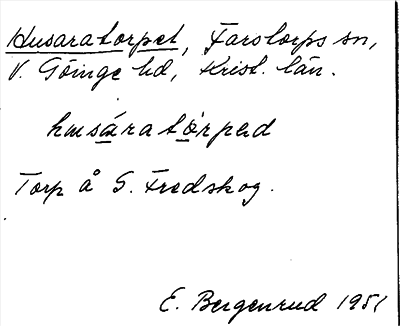 Husaratorpet, Farstorps sn,
V. Göinge hd, Krist. län.
husáratòrpəd
Torp å S. Fredskog.
E. Bergenrud 1951